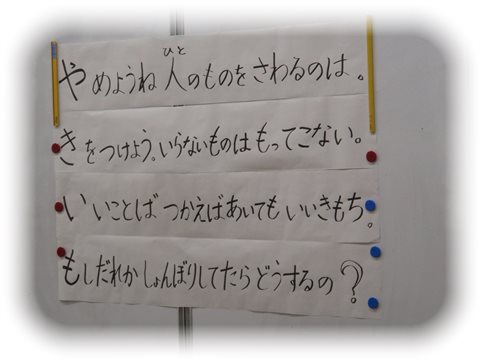 やめようね人のものをさわるのは。
きをつけよう。いらないものはもってこない。
いいことば つかえばあいても いいきもち。
もしだれかしょんぼりしてたらどうするの?